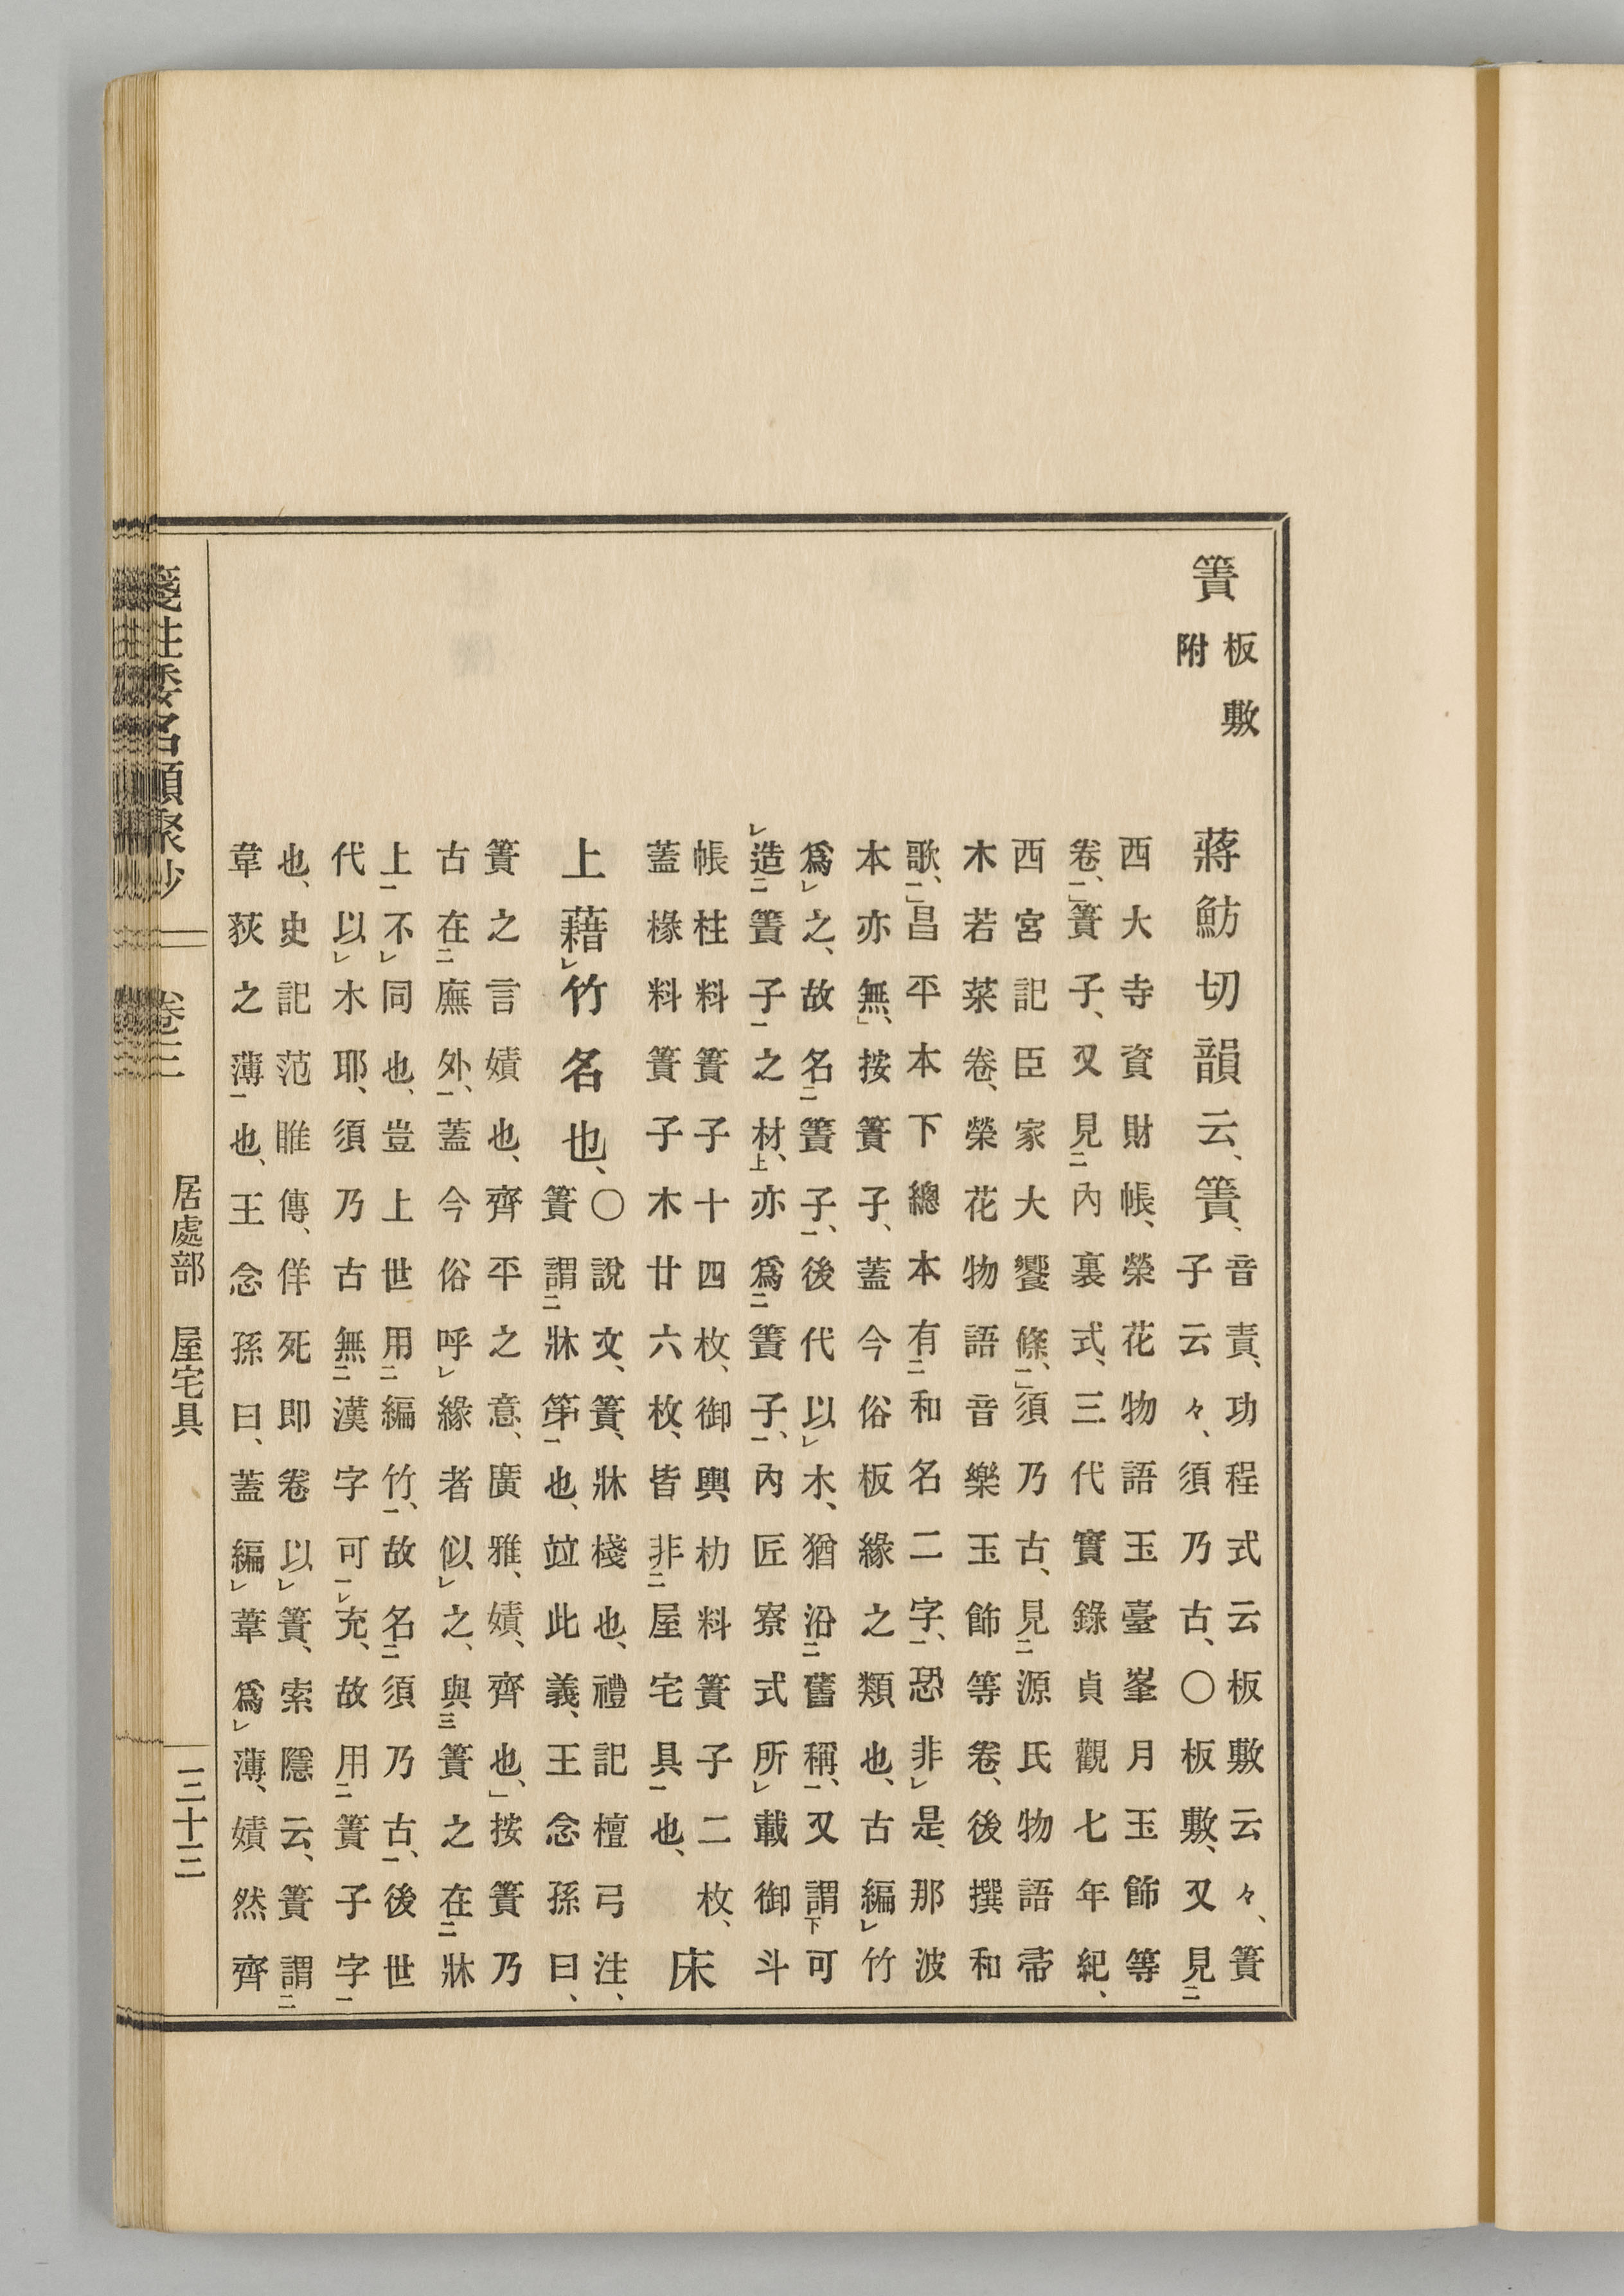 簀 板敷附
蔣魴切韻云、簀、
音責、功程式云板敷云々、簀
子云々、須乃古、〇板敷、又見
西大寺資財帳、榮花物語玉臺峯月玉飾等
卷、」簀子、又見內裏式、三代實錄貞觀七年紀、
西宮記臣家大饗條、」須乃古、見源氏物語帚
木若菜卷、榮花物語音樂玉飾等卷、後撰和
歌、」昌平本下總本有和名二字、恐非是、那波
本亦無、」按簀子、蓋今俗板緣之類也、古編竹
爲之、故名簀子、後代以木、猶沿舊稱、又謂可
造簀子之材、亦爲簀子、內匠寮式所載御斗
帳柱料簀子十四枚、御輿朸料簀子二枚、
蓋椽料簀子木廿六枚、皆非屋宅具也、
床
上藉竹名也、
〇說文、簀、牀棧也、禮記檀弓注、
簀謂牀笫也、竝此義、王念孫曰、
簀之言嫧也、齊平之意、廣雅、嫧、齊也、」按簀乃
古在廡外、蓋今俗呼緣者似之、與簀之在牀
上不同也、豈上世用編竹、故名須乃古、後世
代以木耶、須乃古無漢字可充、故用簀子字
也、史記范睢傳、佯死卽卷以簀、索隱云、簀謂
葦荻之薄也、王念孫曰、蓋編葦爲薄、嫧然齊
箋注倭名類聚抄 卷三 居處部 屋宅具 三十三